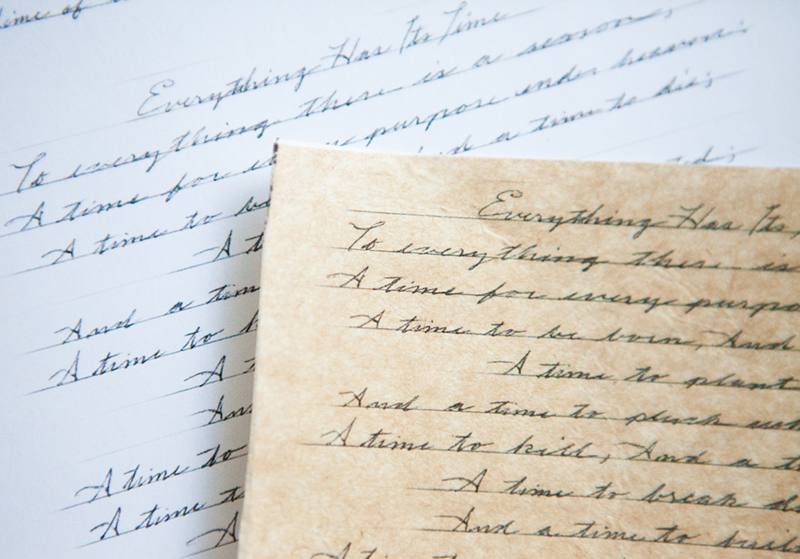 time of
Everything Has Its Time
To everything there is a season,
A time for purpose under heaven:
A time to and a time to die;
A
And a time
A time to
A
And
A time to
A time
A
Everything Has Its
To everything there is
A time for every
A time to be born, And
A time to plant
And a time to pluck
A time to kill, And a
A time to break
And a time to
A time